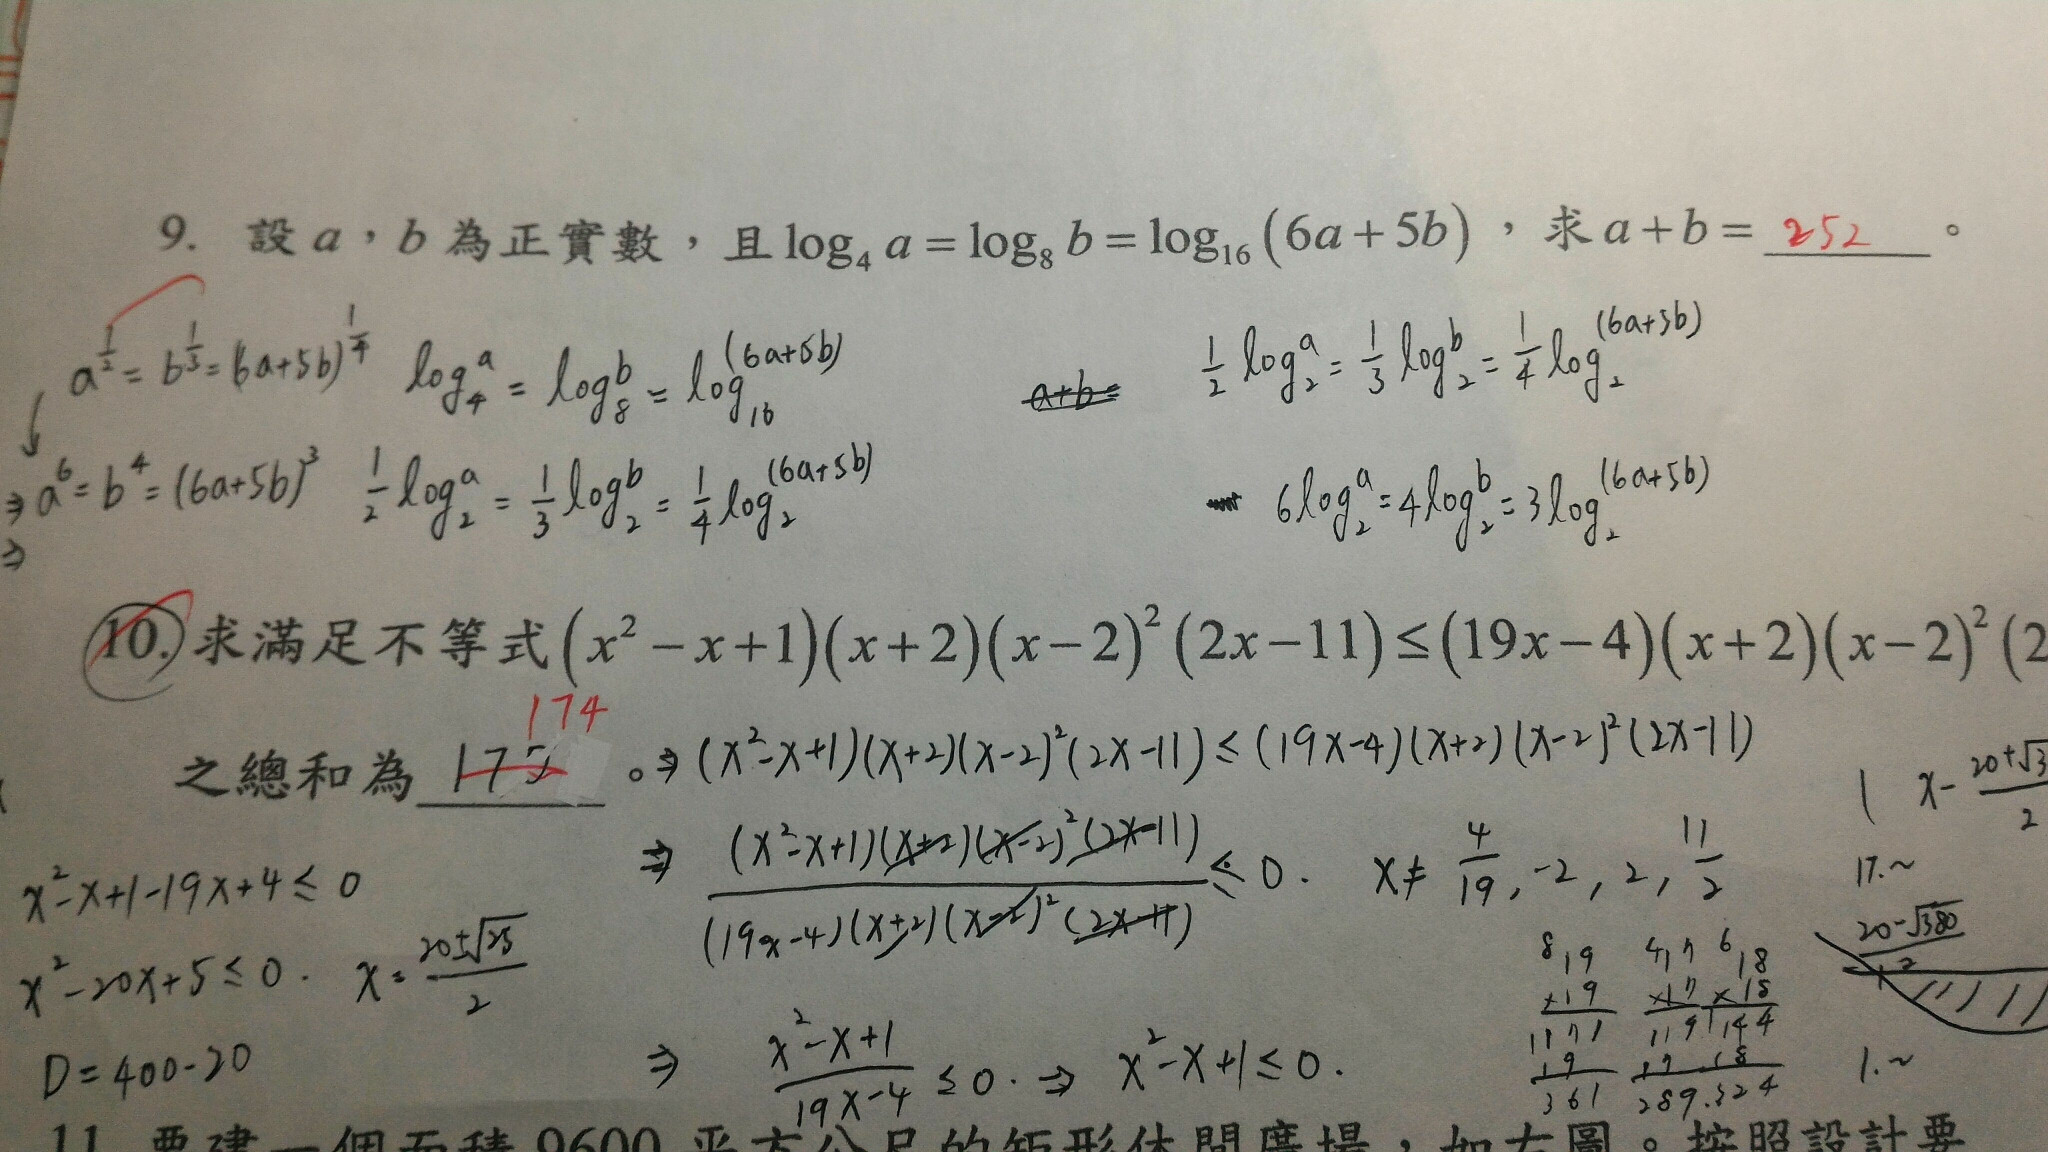 9. 設 a，b 為正實數，且 log₄ a = log₈ b = log₁₆ (6a+5b)，求 a+b = 252 。
a^{1/2} = b^{1/3} = (6a+5b)^{1/4}
log₄^a = log₈^b = log₁₆^{(6a+5b)}
a+b=
1/2 log₂^a = 1/3 log₂^b = 1/4 log₂^{(6a+5b)}
⇒ a⁶ = b⁴ = (6a+5b)³
1/2 log₂^a = 1/3 log₂^b = 1/4 log₂^{(6a+5b)}
6log₂^a = 4log₂^b = 3log₂^{(6a+5b)}
⇒
10. 求滿足不等式 (x²−x+1)(x+2)(x−2)²(2x−11) ≤ (19x−4)(x+2)(x−2)²(2
174
之總和為 175 。
⇒ (x²-x+1)(x+2)(x-2)²(2x-11) ≤ (19x-4)(x+2)(x-2)²(2x-11)
⇒ (x²-x+1)(x+2)(x-2)²(2x-11) / (19x-4)(x+2)(x-2)²(2x-11) ≤ 0. x≠ 4/19, -2, 2, 11/2
x²-x+1-19x+4 ≤ 0
x²-20x+5 ≤ 0. x= (20±√25)/2
D=400-20
⇒ (x²-x+1)/(19x-4) ≤ 0. ⇒ x²-x+1 ≤ 0.
17.~
(20-√380)/2
1.~
19 17 18
×19 ×17 ×18
171 119 144
19 17 18
361 289. 324
11. 要建一個面積 9600 平方公尺的矩形休閒廣場，如右圖。按照設計要